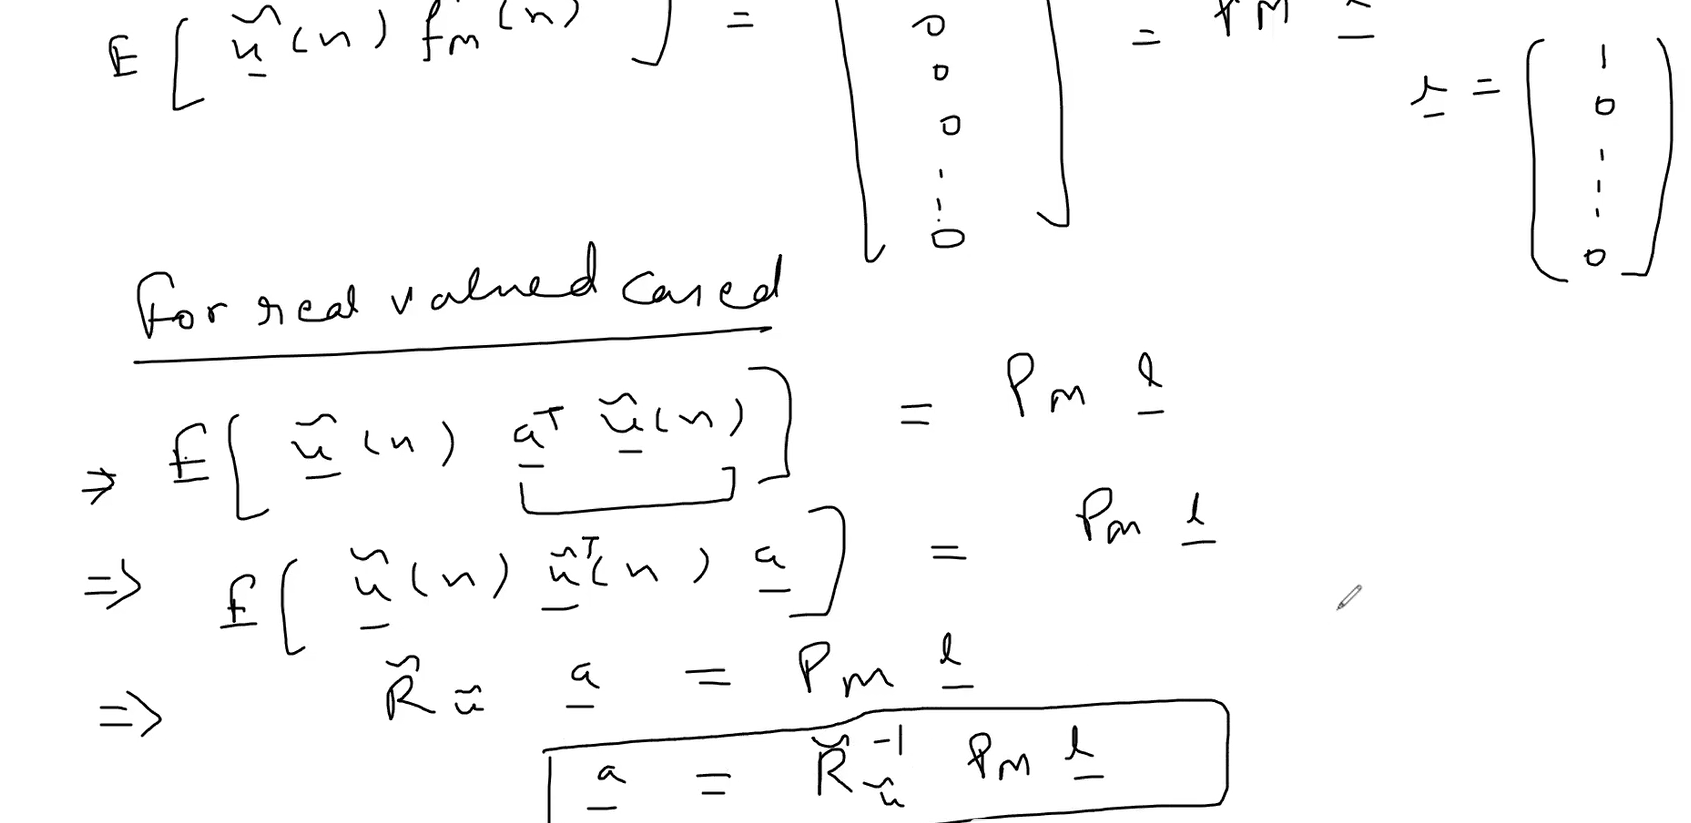 E [ ũ(n) f_m(n) ] = [ 0 0 0 ⋮ 0 ] = P_M
l = ( 1 0 ⋮ 0 )
For real valued cased
⇒ E[ ũ(n) a^T ũ(n) ] = P_m l
⇒ E[ ũ(n) ũ^T(n) a ] = P_m l
⇒ R̃_ũ a = P_m l
a = R̃_ũ^{-1} P_m l